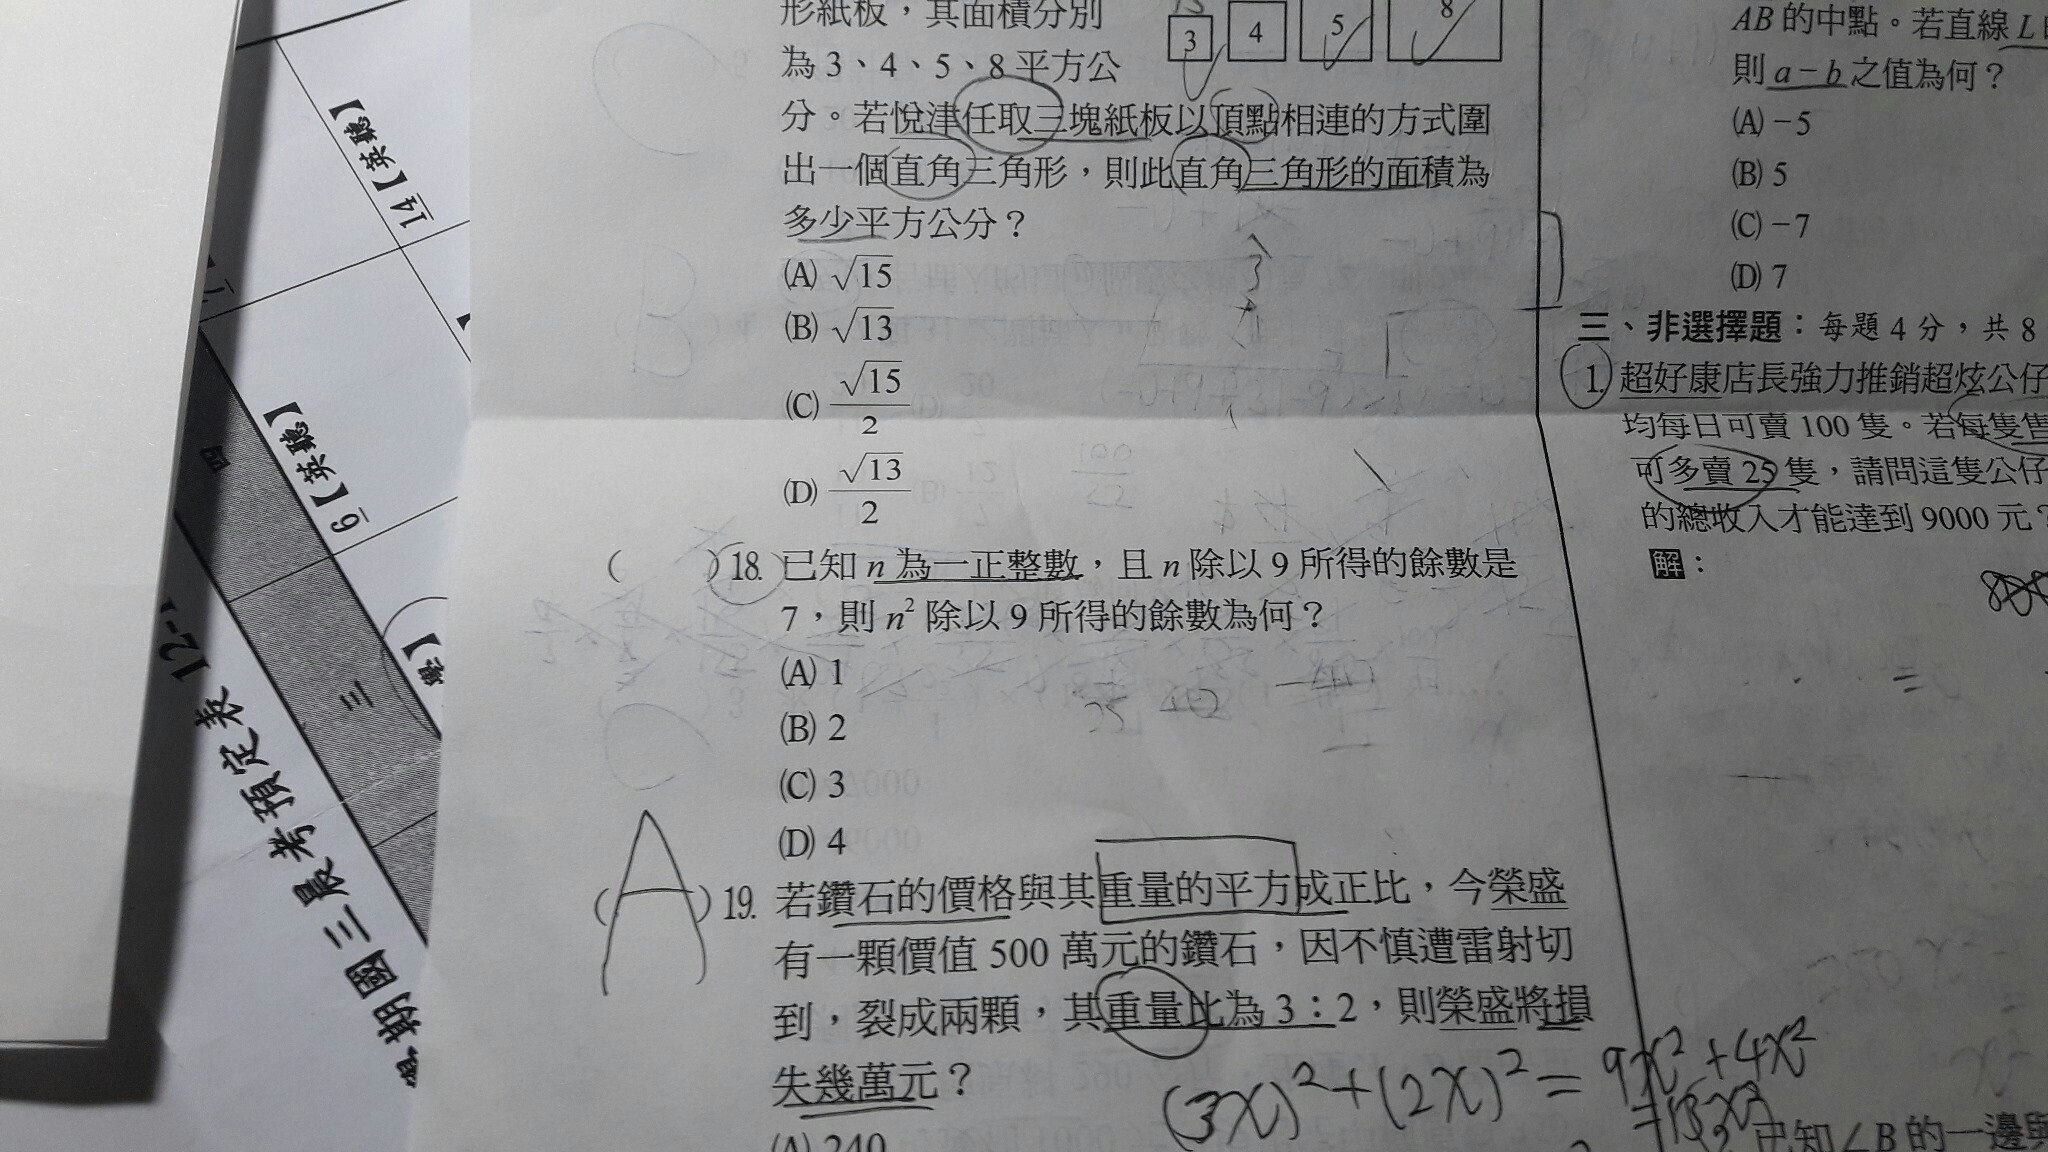 14【英聽】
6【英聽】
四
三
12-1
期國三晨考預定表
形紙板,其面積分別
為 3、4、5、8 平方公
3 4 5 8
分。若悅津任取三塊紙板以頂點相連的方式圍
出一個直角三角形,則此直角三角形的面積為
多少平方公分?
(A) √15
(B) √13
(C) √15/2
(D) √13/2
( ) 18. 已知 n 為一正整數,且 n 除以 9 所得的餘數是
7,則 n² 除以 9 所得的餘數為何?
(A) 1
(B) 2
(C) 3
(D) 4
( A ) 19. 若鑽石的價格與其重量的平方成正比,今榮盛
有一顆價值 500 萬元的鑽石,因不慎遭雷射切
到,裂成兩顆,其重量比為 3:2,則榮盛將損
失幾萬元?
(3x)²+(2x)²= 9x²+4x²
=13x²
(A) 240
AB 的中點。若直線 L
則 a-b 之值為何?
(A) -5
(B) 5
(C) -7
(D) 7
三、非選擇題:每題 4 分,共 8
1. 超好康店長強力推銷超炫公仔
均每日可賣 100 隻。若每隻售
可多賣 25 隻,請問這隻公仔
的總收入才能達到 9000 元?
解:
已知∠B 的一邊與